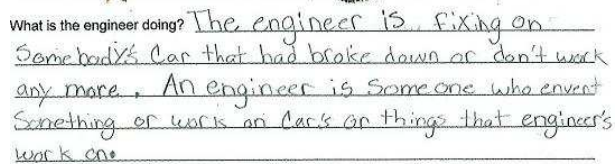 What is the engineer doing? The engineer is fixing on
Somebody's Car that had broke down or don't work
any more. An engineer is Someone who envent
Something or work on Car's or things that engineer's
work on.